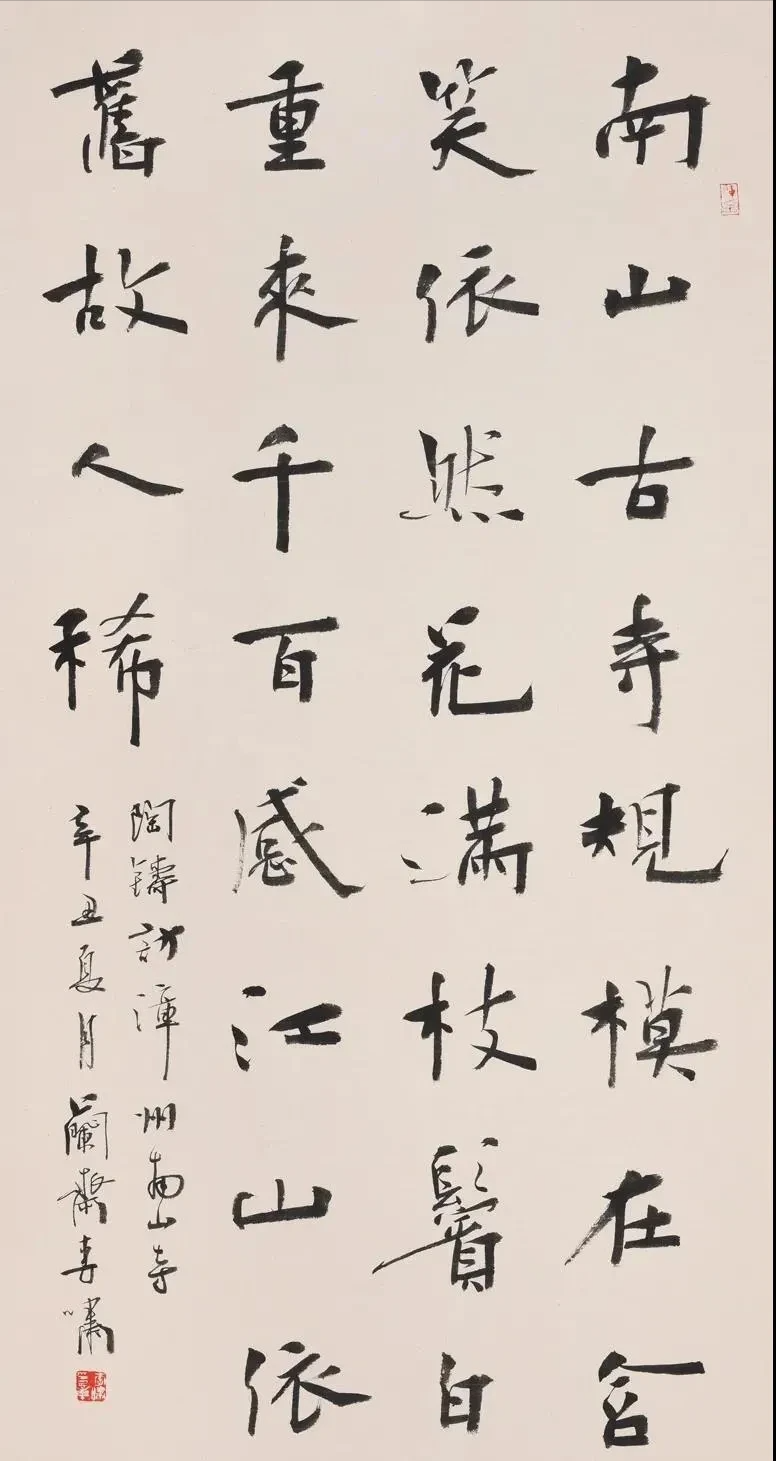 南山古寺規模在含
笑依然花满枝鬢白
重來千百感江山依
舊故人稀
陶鑄訪漳州南山寺
辛丑夏月蘭齋李嘯